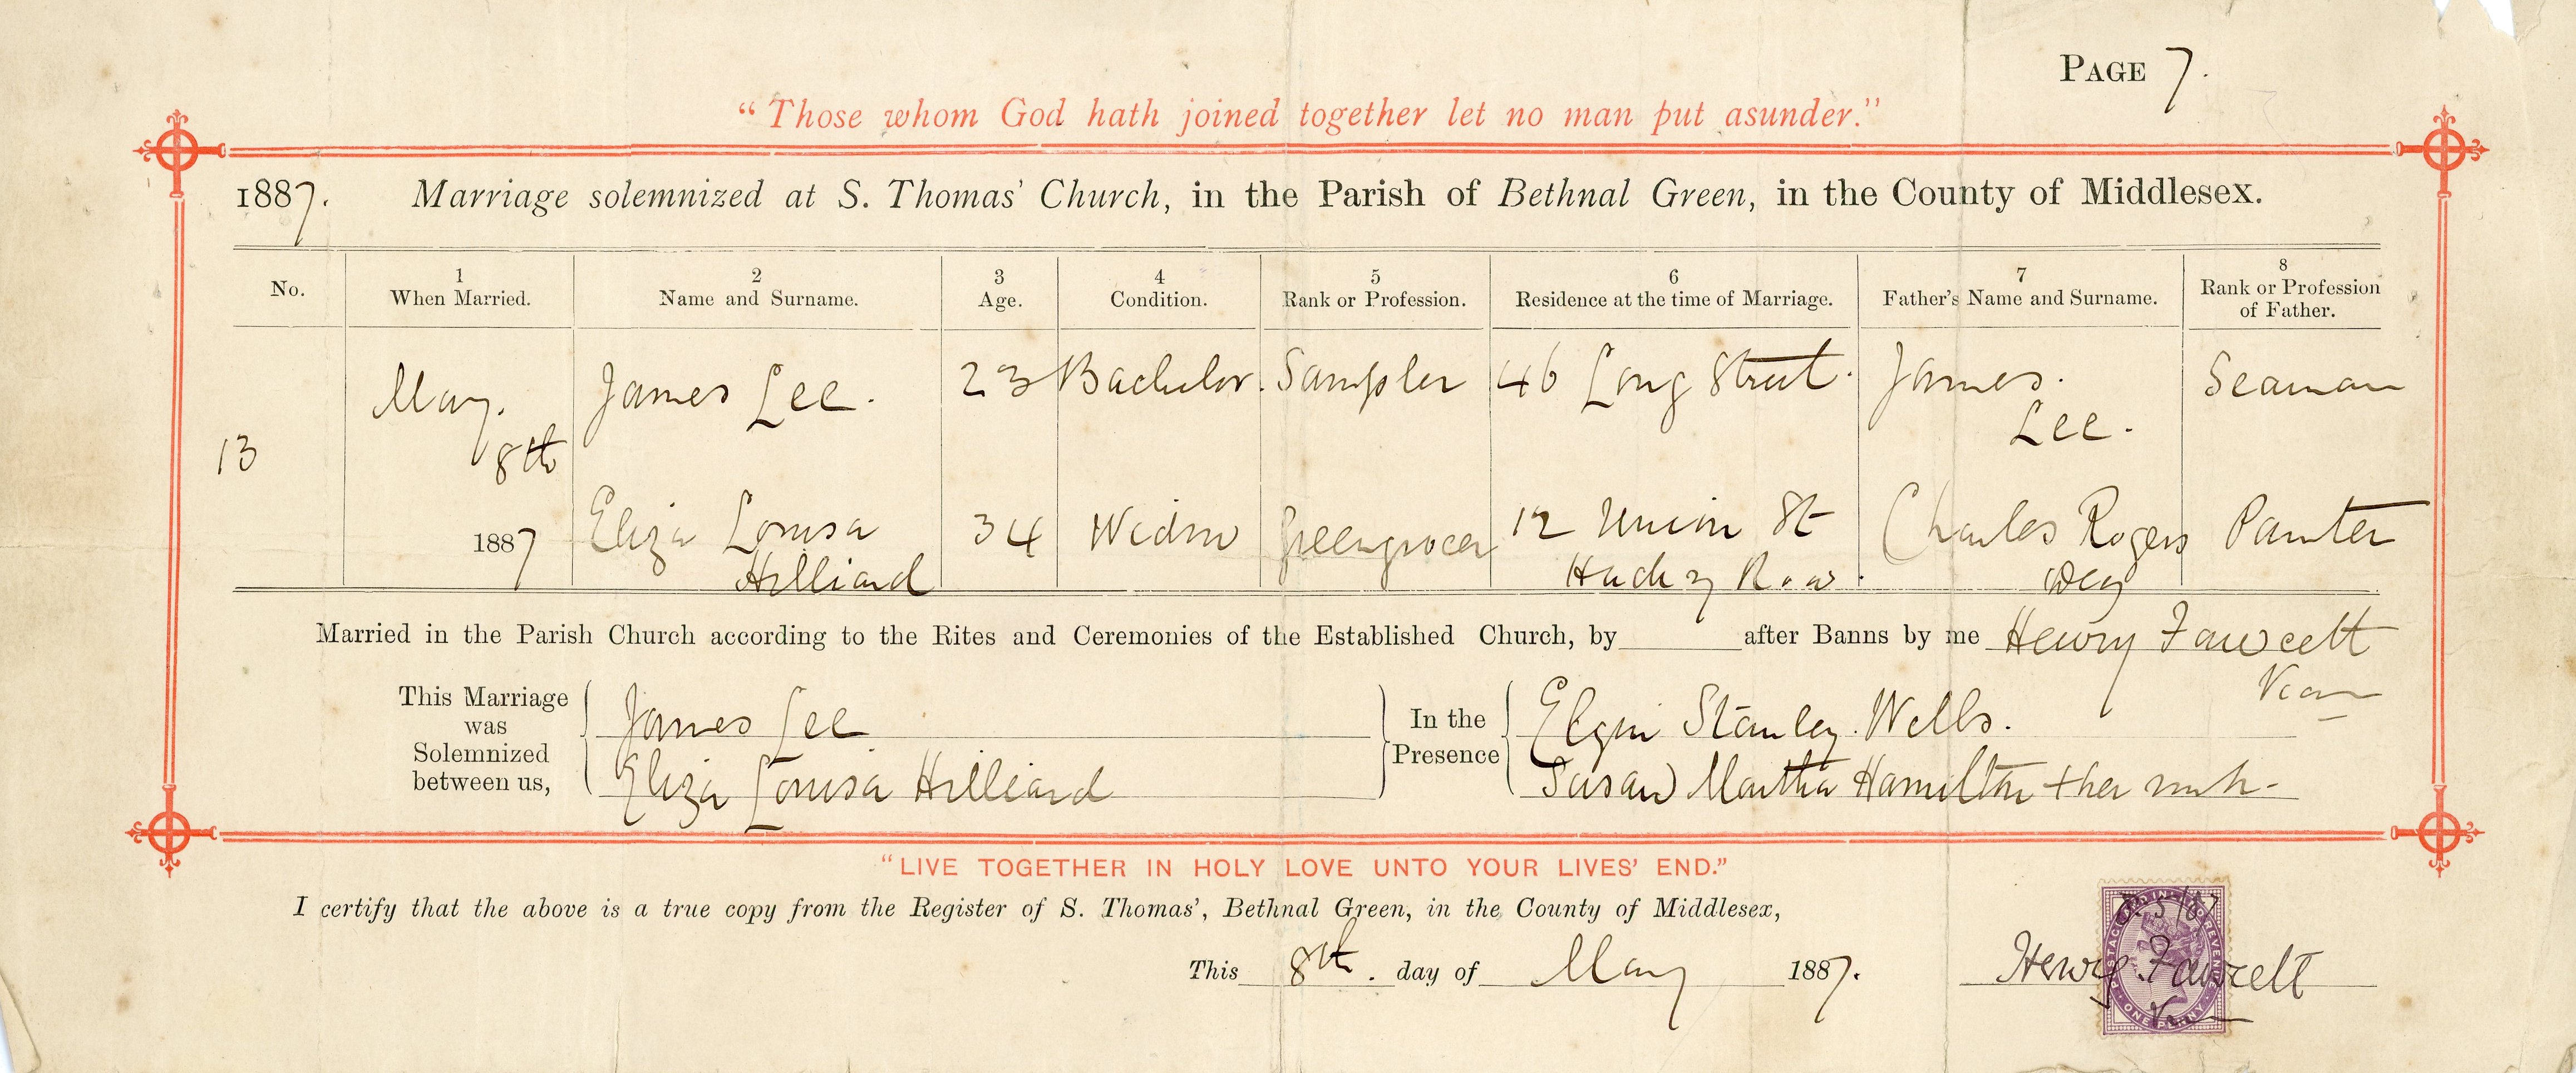 PAGE 7.
"Those whom God hath joined together let no man put asunder."
1887. Marriage solemnized at S. Thomas' Church, in the Parish of Bethnal Green, in the County of Middlesex.
No. 1 When Married. 2 Name and Surname. 3 Age. 4 Condition. 5 Rank or Profession. 6 Residence at the time of Marriage. 7 Father's Name and Surname. 8 Rank or Profession of Father.
May. James Lee. 23 Bachelor. Sampler 46 Long Street. James. Seaman
Lee.
13 8th
1887 Eliza Louisa 34 Widow Greengrocer 12 Union St Charles Rogers Painter
Hilliard Hackney Row.
Married in the Parish Church according to the Rites and Ceremonies of the Established Church, by after Banns by me Henry Fawcett
Vicar
This Marriage was Solemnized between us,
James Lee
Eliza Louisa Hilliard
In the Presence
Elgin Stanley Wells.
Susan Martha Hamilton + her mark
"LIVE TOGETHER IN HOLY LOVE UNTO YOUR LIVES' END."
I certify that the above is a true copy from the Register of S. Thomas', Bethnal Green, in the County of Middlesex,
This 8th. day of May 1887.
Henry Fawcett
Vicar
POSTAGE AND INLAND REVENUE
ONE PENNY